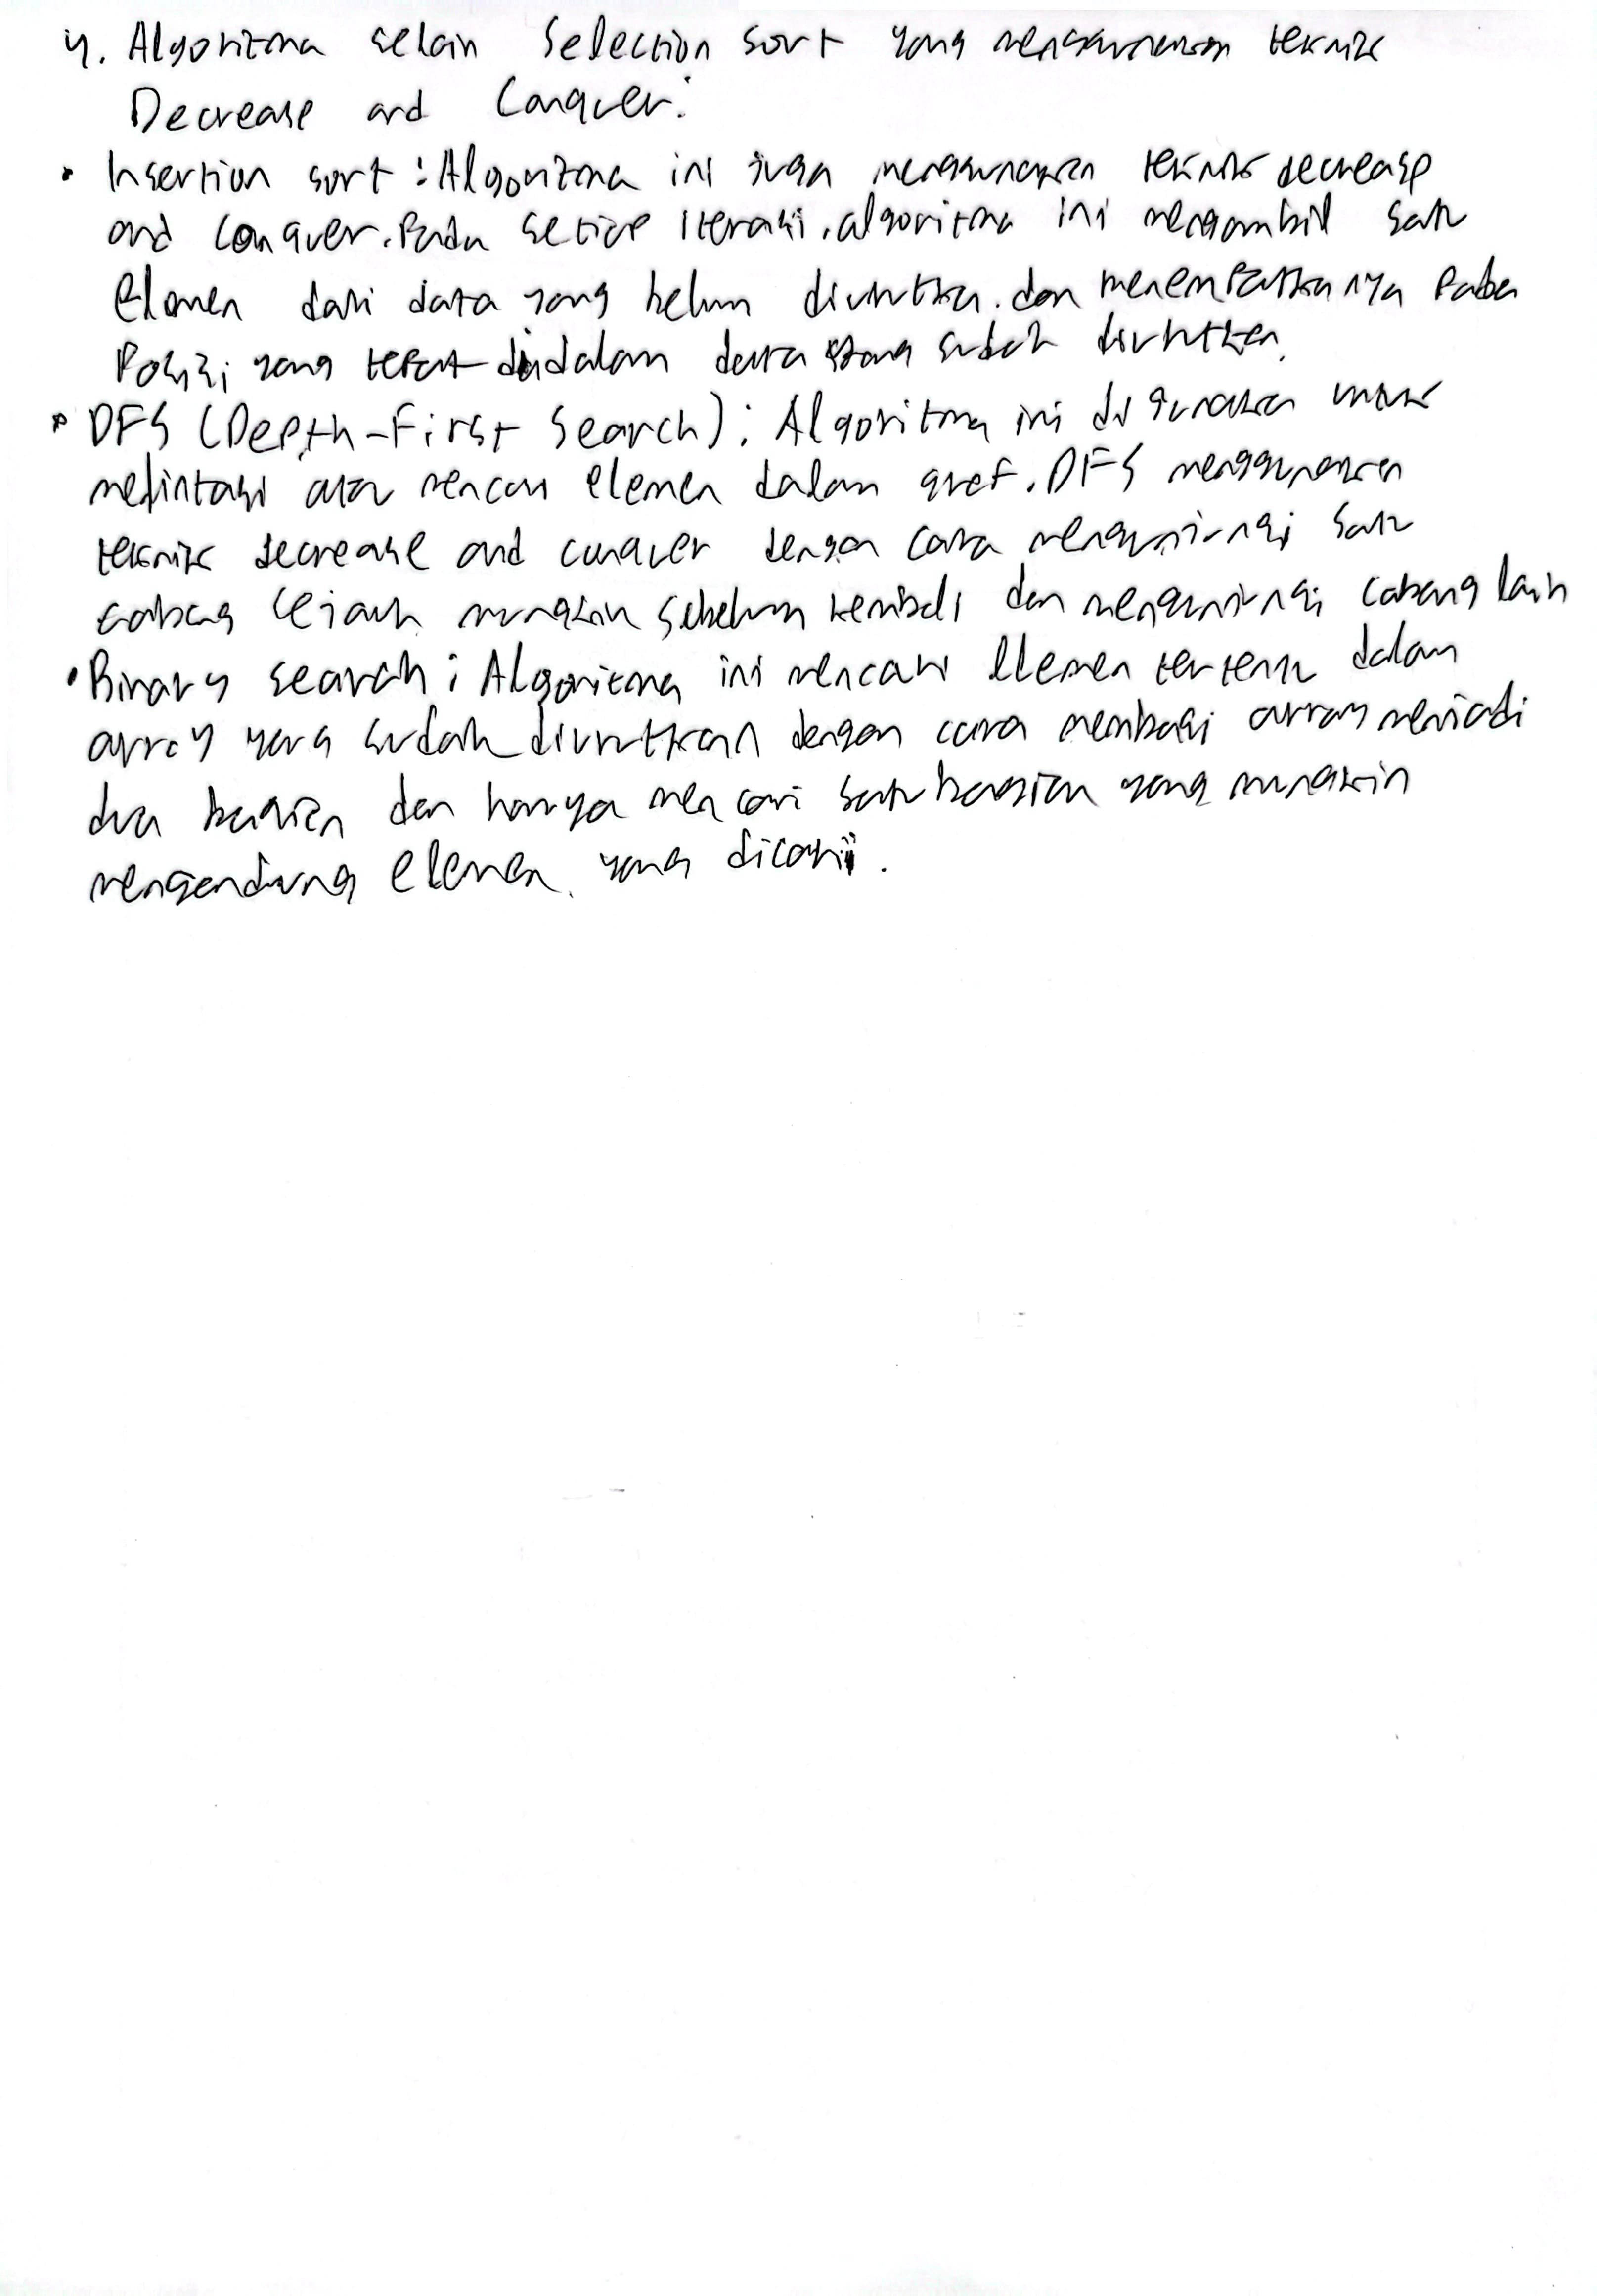 4. Algoritma selain Selection sort yang menggunakan teknik
Decrease and Conquer:
• Insertion sort : Algoritma ini juga menggunakan teknik decrease
and Conquer. Pada setiap iterasi, algoritma ini mengambil satu
Elemen dari data yang belum diurutkan. dan menempatkannya Pada
Posisi yang tepat didalam data yang sudah diurutkan.
• DFS (Depth-First Search) : Algoritma ini digunakan untuk
melintasi atau mencari elemen dalam graf. DFS menggunakan
teknik decrease and conquer dengan cara mengunjungi satu
cabang sejauh mungkin sebelum kembali dan mengunjungi cabang lain
• Binary search : Algoritma ini mencari elemen tertentu dalam
array yang sudah diurutkan dengan cara membagi array menjadi
dua bagian dan hanya mencari satu bagian yang mungkin
mengandung elemen yang dicari.